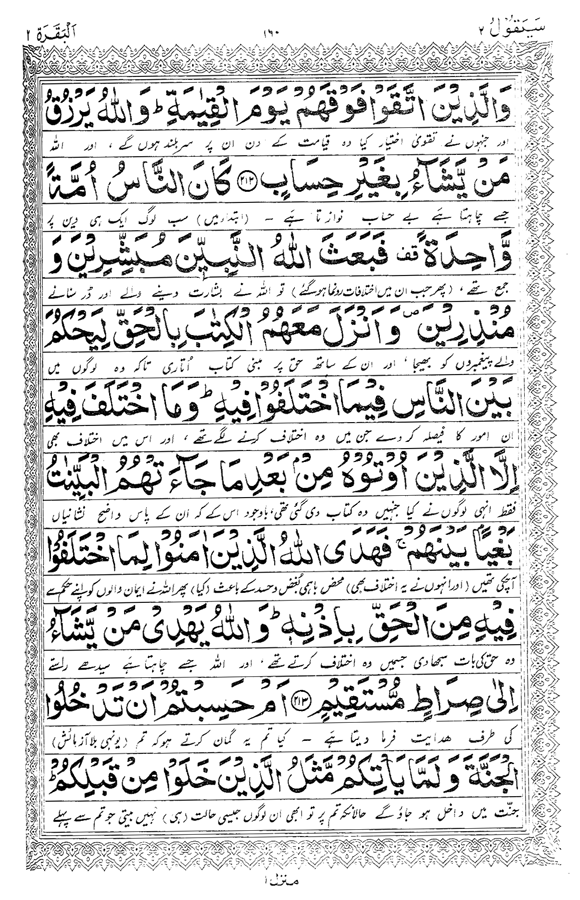 سَيَقُوْلُ ٢ ١٦٠ اَلْبَقَرَة ٢
وَالَّذِيْنَ اتَّقَوْا فَوْقَهُمْ يَوْمَ الْقِيٰمَةِ ؕ وَاللّٰهُ يَرْزُقُ
اور جنہوں نے تقویٰ اختیار کیا وہ قیامت کے دن ان پر سربلند ہوں گے ، اور اللہ
مَنْ يَّشَآءُ بِغَيْرِ حِسَابٍ ﴿۲۱۲﴾ كَانَ النَّاسُ اُمَّةً
جسے چاہتا ہے بے حساب نوازتا ہے ۔ (ابتداء میں) سب لوگ ایک ہی دین پر
وَّاحِدَةً قف فَبَعَثَ اللّٰهُ النَّبِيّٖنَ مُبَشِّرِيْنَ وَ
جمع تھے ، (پھر جب ان میں اختلافات رونما ہو گئے) تو اللہ نے بشارت دینے والے اور ڈر سنانے
مُنْذِرِيْنَ ۪ وَاَنْزَلَ مَعَهُمُ الْكِتٰبَ بِالْحَقِّ لِيَحْكُمَ
والے پیغمبروں کو بھیجا ، اور ان کے ساتھ حق پر مبنی کتاب اتاری تاکہ وہ لوگوں میں
بَيْنَ النَّاسِ فِيْمَا اخْتَلَفُوْا فِيْهِ ؕ وَمَا اخْتَلَفَ فِيْهِ
ان امور کا فیصلہ کر دے جن میں وہ اختلاف کرنے لگے تھے ، اور اس میں اختلاف بھی
اِلَّا الَّذِيْنَ اُوْتُوْهُ مِنْۢ بَعْدِ مَا جَآءَتْهُمُ الْبَيِّنٰتُ
فقط انہی لوگوں نے کیا جنہیں وہ کتاب دی گئی تھی، باوجود اس کے کہ ان کے پاس واضح نشانیاں
بَغْيًۢا بَيْنَهُمْ ۚ فَهَدَى اللّٰهُ الَّذِيْنَ اٰمَنُوْا لِمَا اخْتَلَفُوْا
آچکی تھیں (اور انہوں نے یہ اختلاف بھی) محض باہمی بغض و حسد کے باعث (کیا) پھر اللہ نے ایمان والوں کو اپنے حکم سے
فِيْهِ مِنَ الْحَقِّ بِاِذْنِهٖ ؕ وَاللّٰهُ يَهْدِيْ مَنْ يَّشَآءُ
وہ حق کی بات سمجھا دی جس میں وہ اختلاف کرتے تھے ، اور اللہ جسے چاہتا ہے سیدھے راستے
اِلٰى صِرَاطٍ مُّسْتَقِيْمٍ ﴿۲۱۳﴾ اَمْ حَسِبْتُمْ اَنْ تَدْخُلُوا
کی طرف ھدایت فرما دیتا ہے ۔ کیا تم یہ گمان کرتے ہو کہ تم (یونہی بلا آزمائش)
الْجَنَّةَ وَلَمَّا يَاْتِكُمْ مَّثَلُ الَّذِيْنَ خَلَوْا مِنْ قَبْلِكُمْ ؕ
جنّت میں داخل ہو جاؤ گے حالانکہ تم پر تو ابھی ان لوگوں جیسی حالت (ہی) نہیں بیتی جو تم سے پہلے
منزل ١